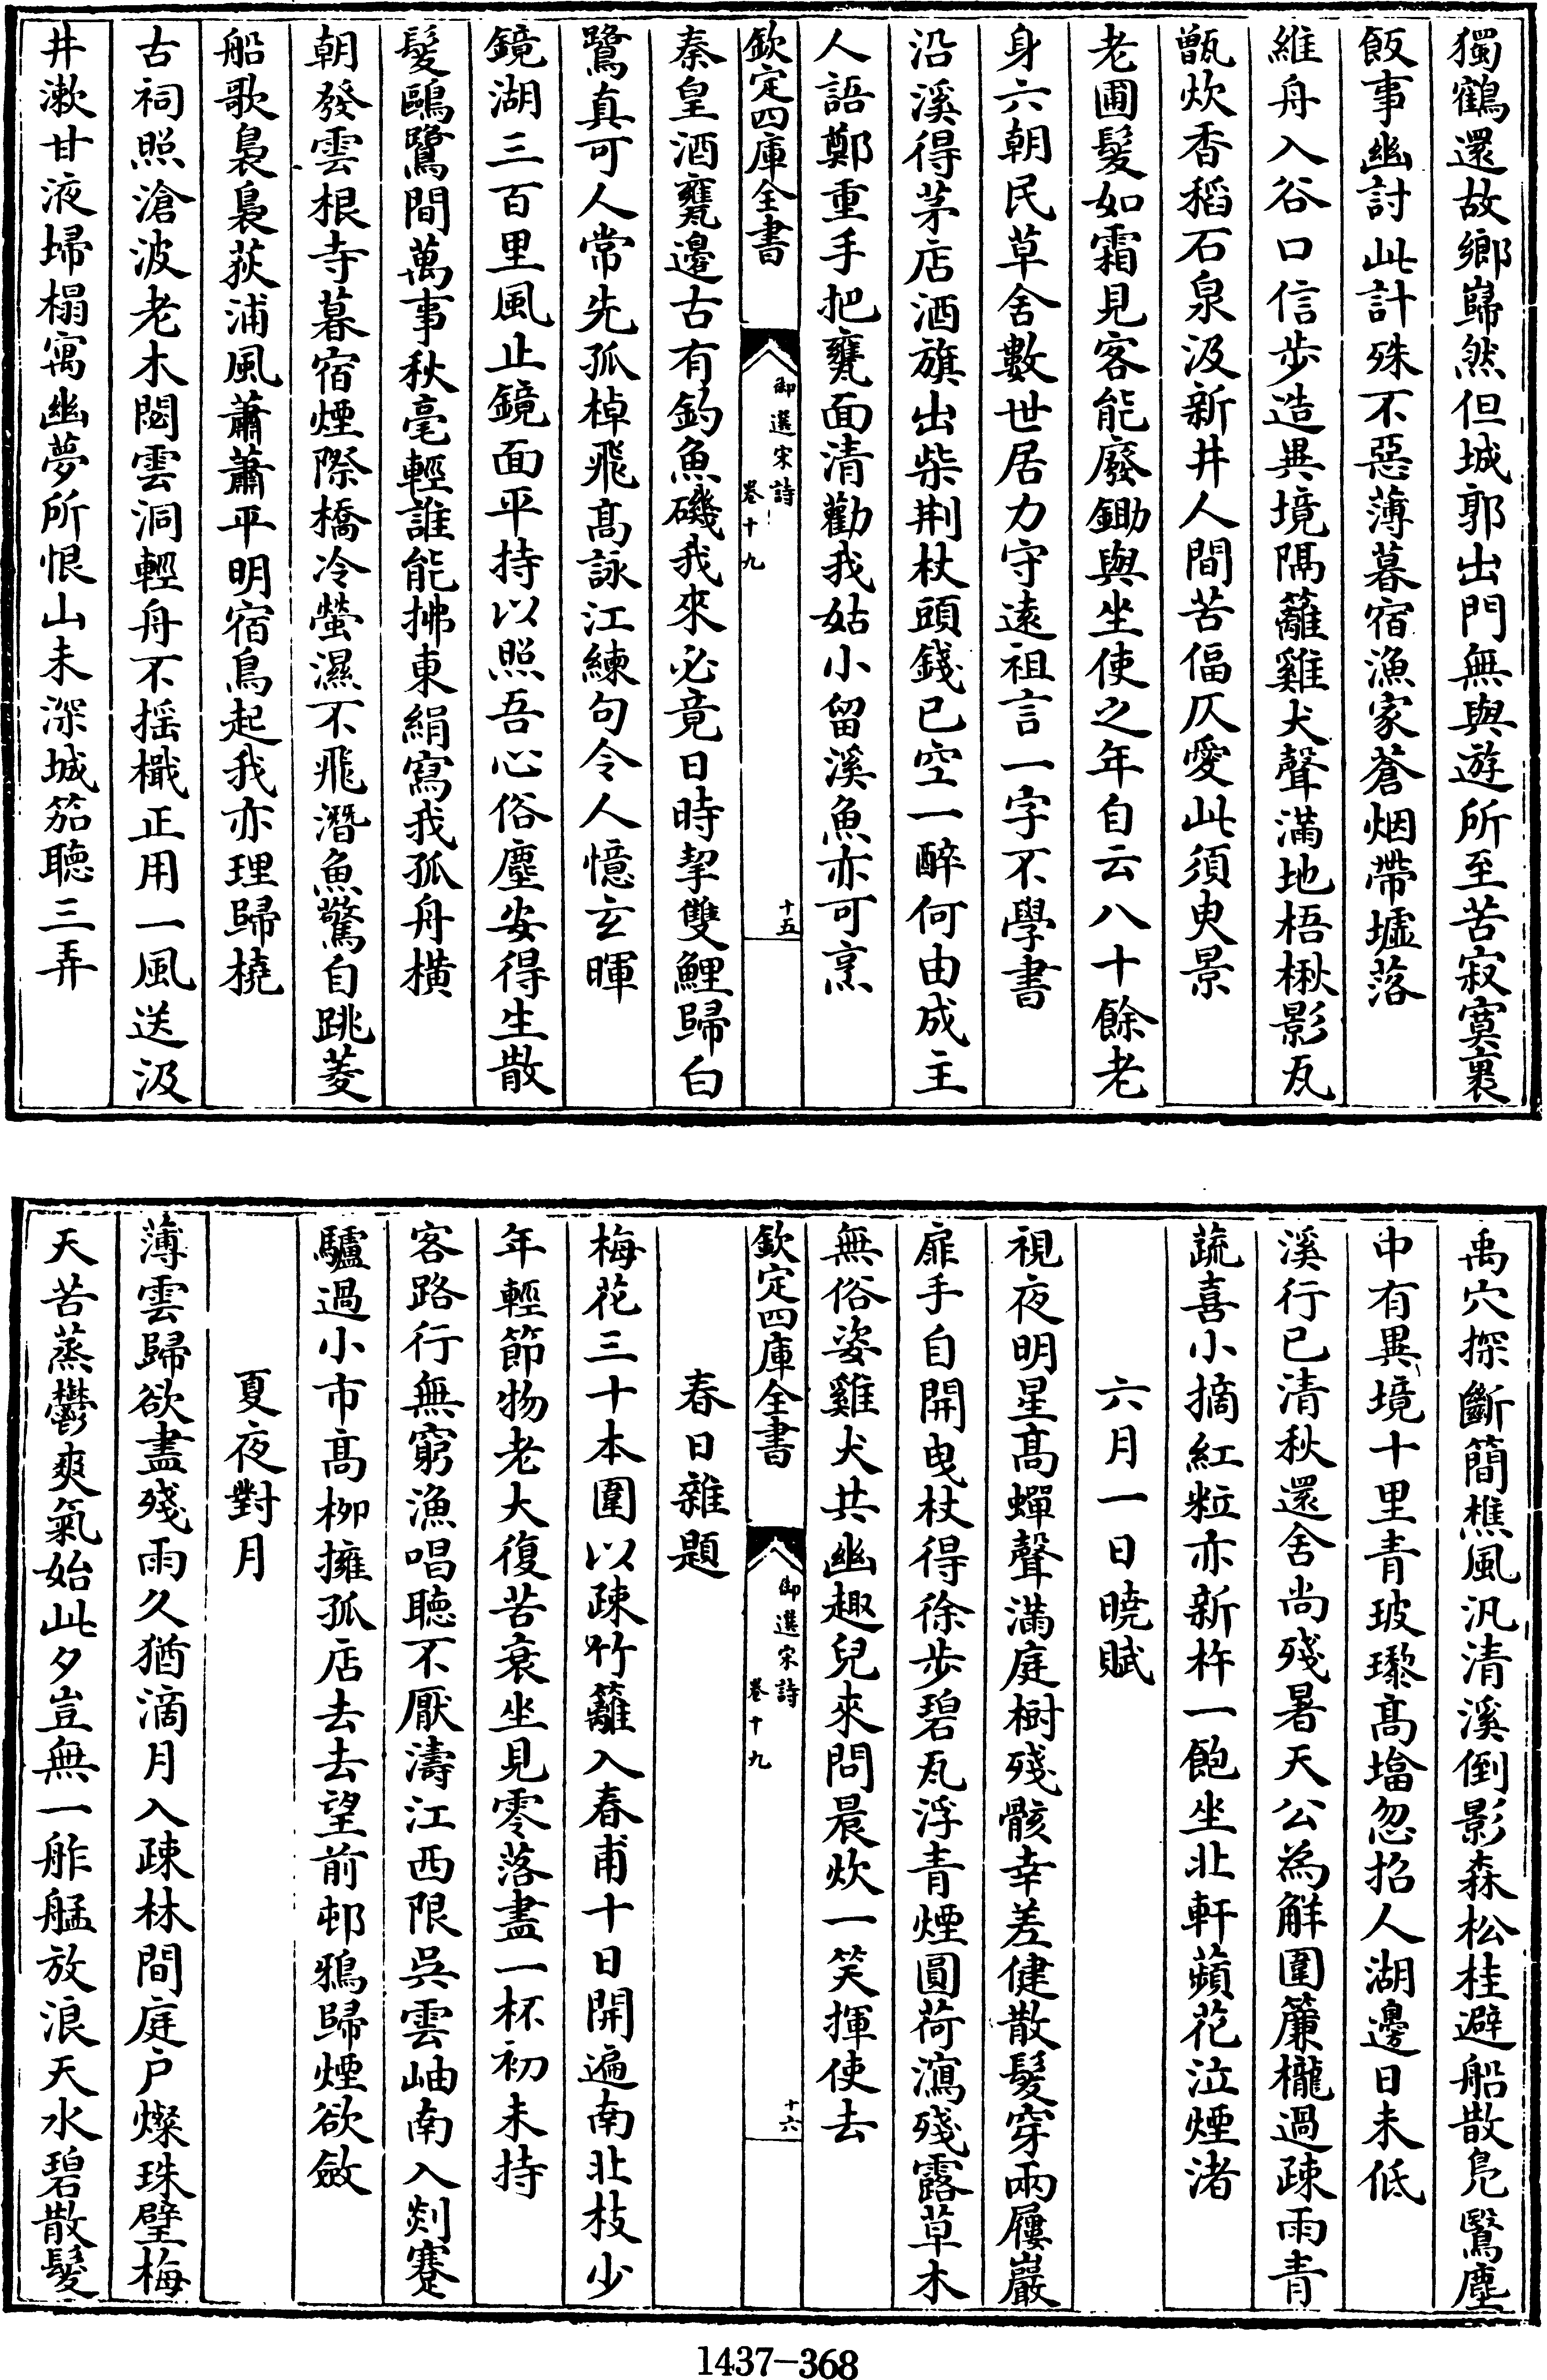 獨鶴還故鄉巋然但城郭出門無與遊所至苦寂寞裹
飯事幽討此計殊不惡薄暮宿漁家蒼烟帶墟落
維舟入谷口信步造異境隔籬雞犬聲滿地梧楸影瓦
甑炊香稻石泉汲新井人間苦偪仄愛此須臾景
老圃髮如霜見客能廢鋤與坐使之年自云八十餘老
身六朝民草舍數世居力守遠祖言一字不學書
沿溪得茅店酒旗出柴荆杖頭錢已空一醉何由成主
人語鄭重手把甕面清勸我姑小留溪魚亦可烹
欽定四庫全書
御選宋詩
卷十九
十五
秦皇酒甕邊古有釣魚磯我來必竟日時挈雙鯉歸白
鷺真可人常先孤棹飛高詠江練句令人憶玄暉
鏡湖三百里風止鏡面平持以照吾心俗塵安得生散
髮鷗鷺間萬事秋毫輕誰能拂東絹寫我孤舟橫
朝發雲根寺暮宿煙際橋冷螢濕不飛潛魚驚自跳菱
船歌裊裊荻浦風蕭蕭平明宿鳥起我亦理歸橈
古祠照滄波老木閟雲洞輕舟不搖檝正用一風送汲
井漱甘液埽榻寓幽夢所恨山未深城笳聽三弄
禹穴探斷簡樵風汎清溪倒影森松桂避船散鳧鷖塵
中有異境十里青玻瓈高墖忽招人湖邊日未低
溪行已清秋還舍尚殘暑天公為解圍簾櫳過疎雨青
蔬喜小摘紅粒亦新杵一飽坐北軒蘋花泣煙渚
六月一日曉賦
視夜明星高蟬聲滿庭樹殘骸幸差健散髮穿兩屨巖
扉手自開曳杖得徐步碧瓦浮青煙圓荷瀉殘露草木
無俗姿雞犬共幽趣兒來問晨炊一笑揮使去
欽定四庫全書
御選宋詩
卷十九
十六
春日雜題
梅花三十本圍以疎竹籬入春甫十日開遍南北枝少
年輕節物老大復苦衰坐見零落盡一杯初未持
客路行無窮漁唱聽不厭濤江西限吳雲岫南入剡蹇
驢過小市高柳擁孤店去去望前邨鴉歸煙欲斂
夏夜對月
薄雲歸欲盡殘雨久猶滴月入疎林間庭戶燦珠璧梅
天苦蒸鬱爽氣始此夕豈無一舴艋放浪天水碧散髮
1437-368